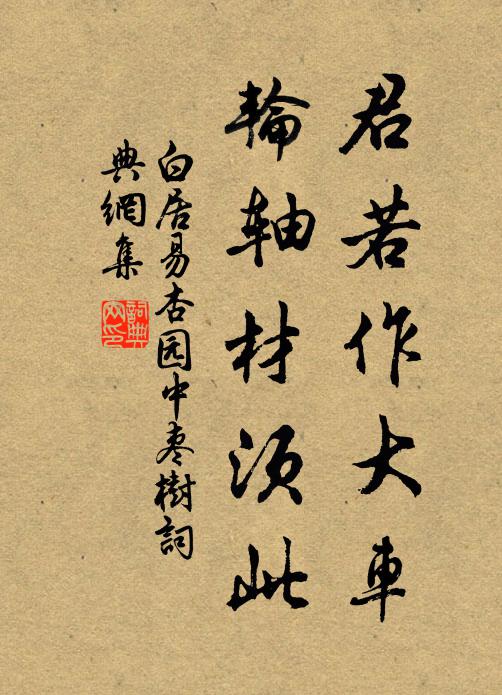 君若作大車
輪轴材须此
白居易杏园中枣樹詞
典網集
詞典
网印